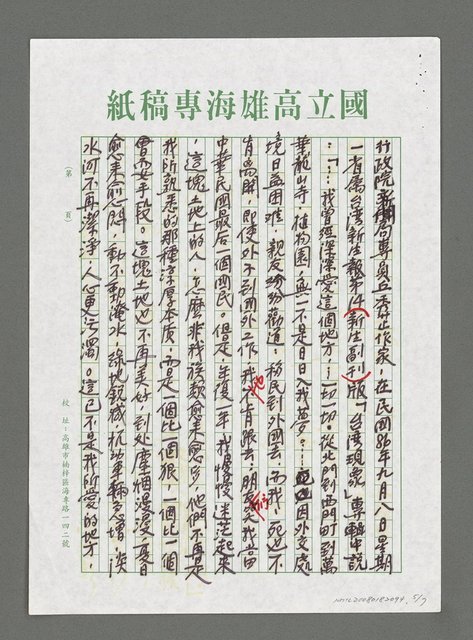 國立高雄海專稿紙
行政院新聞局專員丘秀芷作家,在民國86年九月八日星期
一省屬台灣新生報第14(新生副刊)版「台灣現象」專輯中說
:「…我曾經深深愛這個地方…一切一切。從北門到西門町到萬
華龍山寺、植物園,無一不是日日入我夢?…因外交處
境日益困難,親友紛紛勸道:移民到外國去,而我,死也不
肯離開,即使外子到國外工作,我也不肯跟去,朋友說我當
中華民國最后一個國民。但是一年復一年,我慢慢迷茫起來
,這塊土地上的人,怎麼非我族類愈來愈多,他們不再是
我所親愛的那種淳厚本质,而是一個比一個狠,一個比一個
會耍手段。這塊土地也不再美好,到处塵烟漫漫,夏日
愈來愈悶,動不動淹水,綠地銳減,機动車輛急增,淡
水河不再潔淨,人心更污濁。這已不是我所愛的地方,
(第 頁)
校址:高雄市楠梓區海專路一四二號
nmtl20080182094 5/7